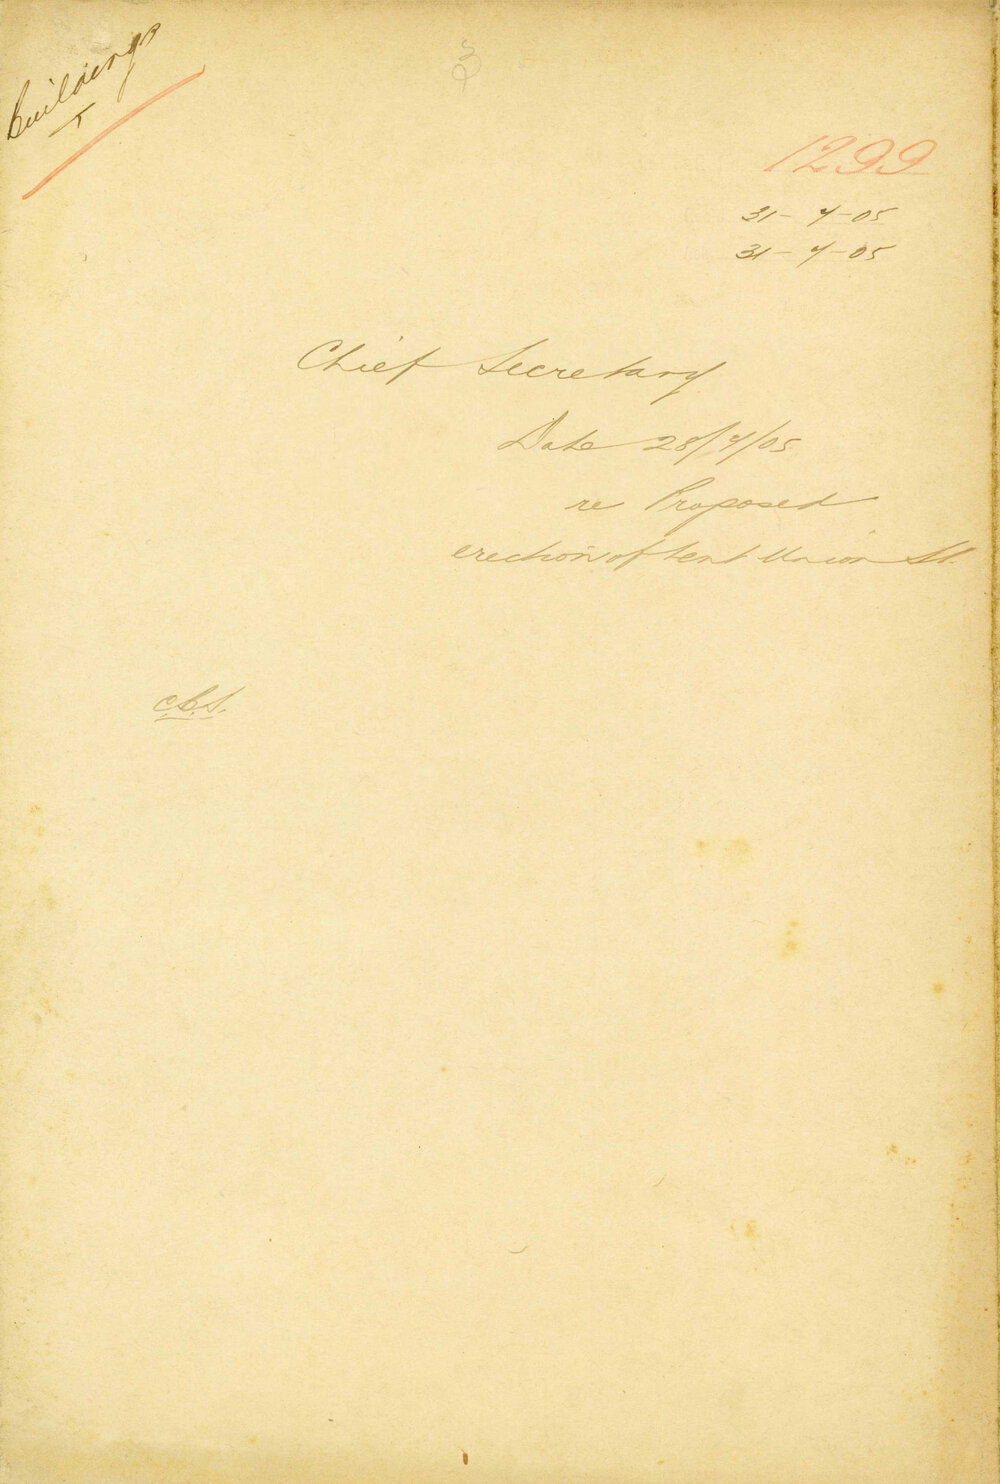 Buildings
T
1299
31-7-05
31-7-05
Chief Secretary
Date 28/7/05
re Proposed
erection of tent Union St.